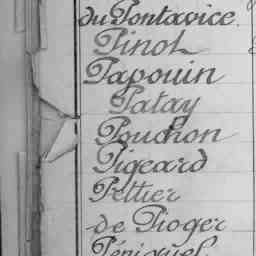 du Pontavice.
Pinot
Papouin
Patay
Pouchon
Pigeard
Peltier
de Pioger
Péniguel